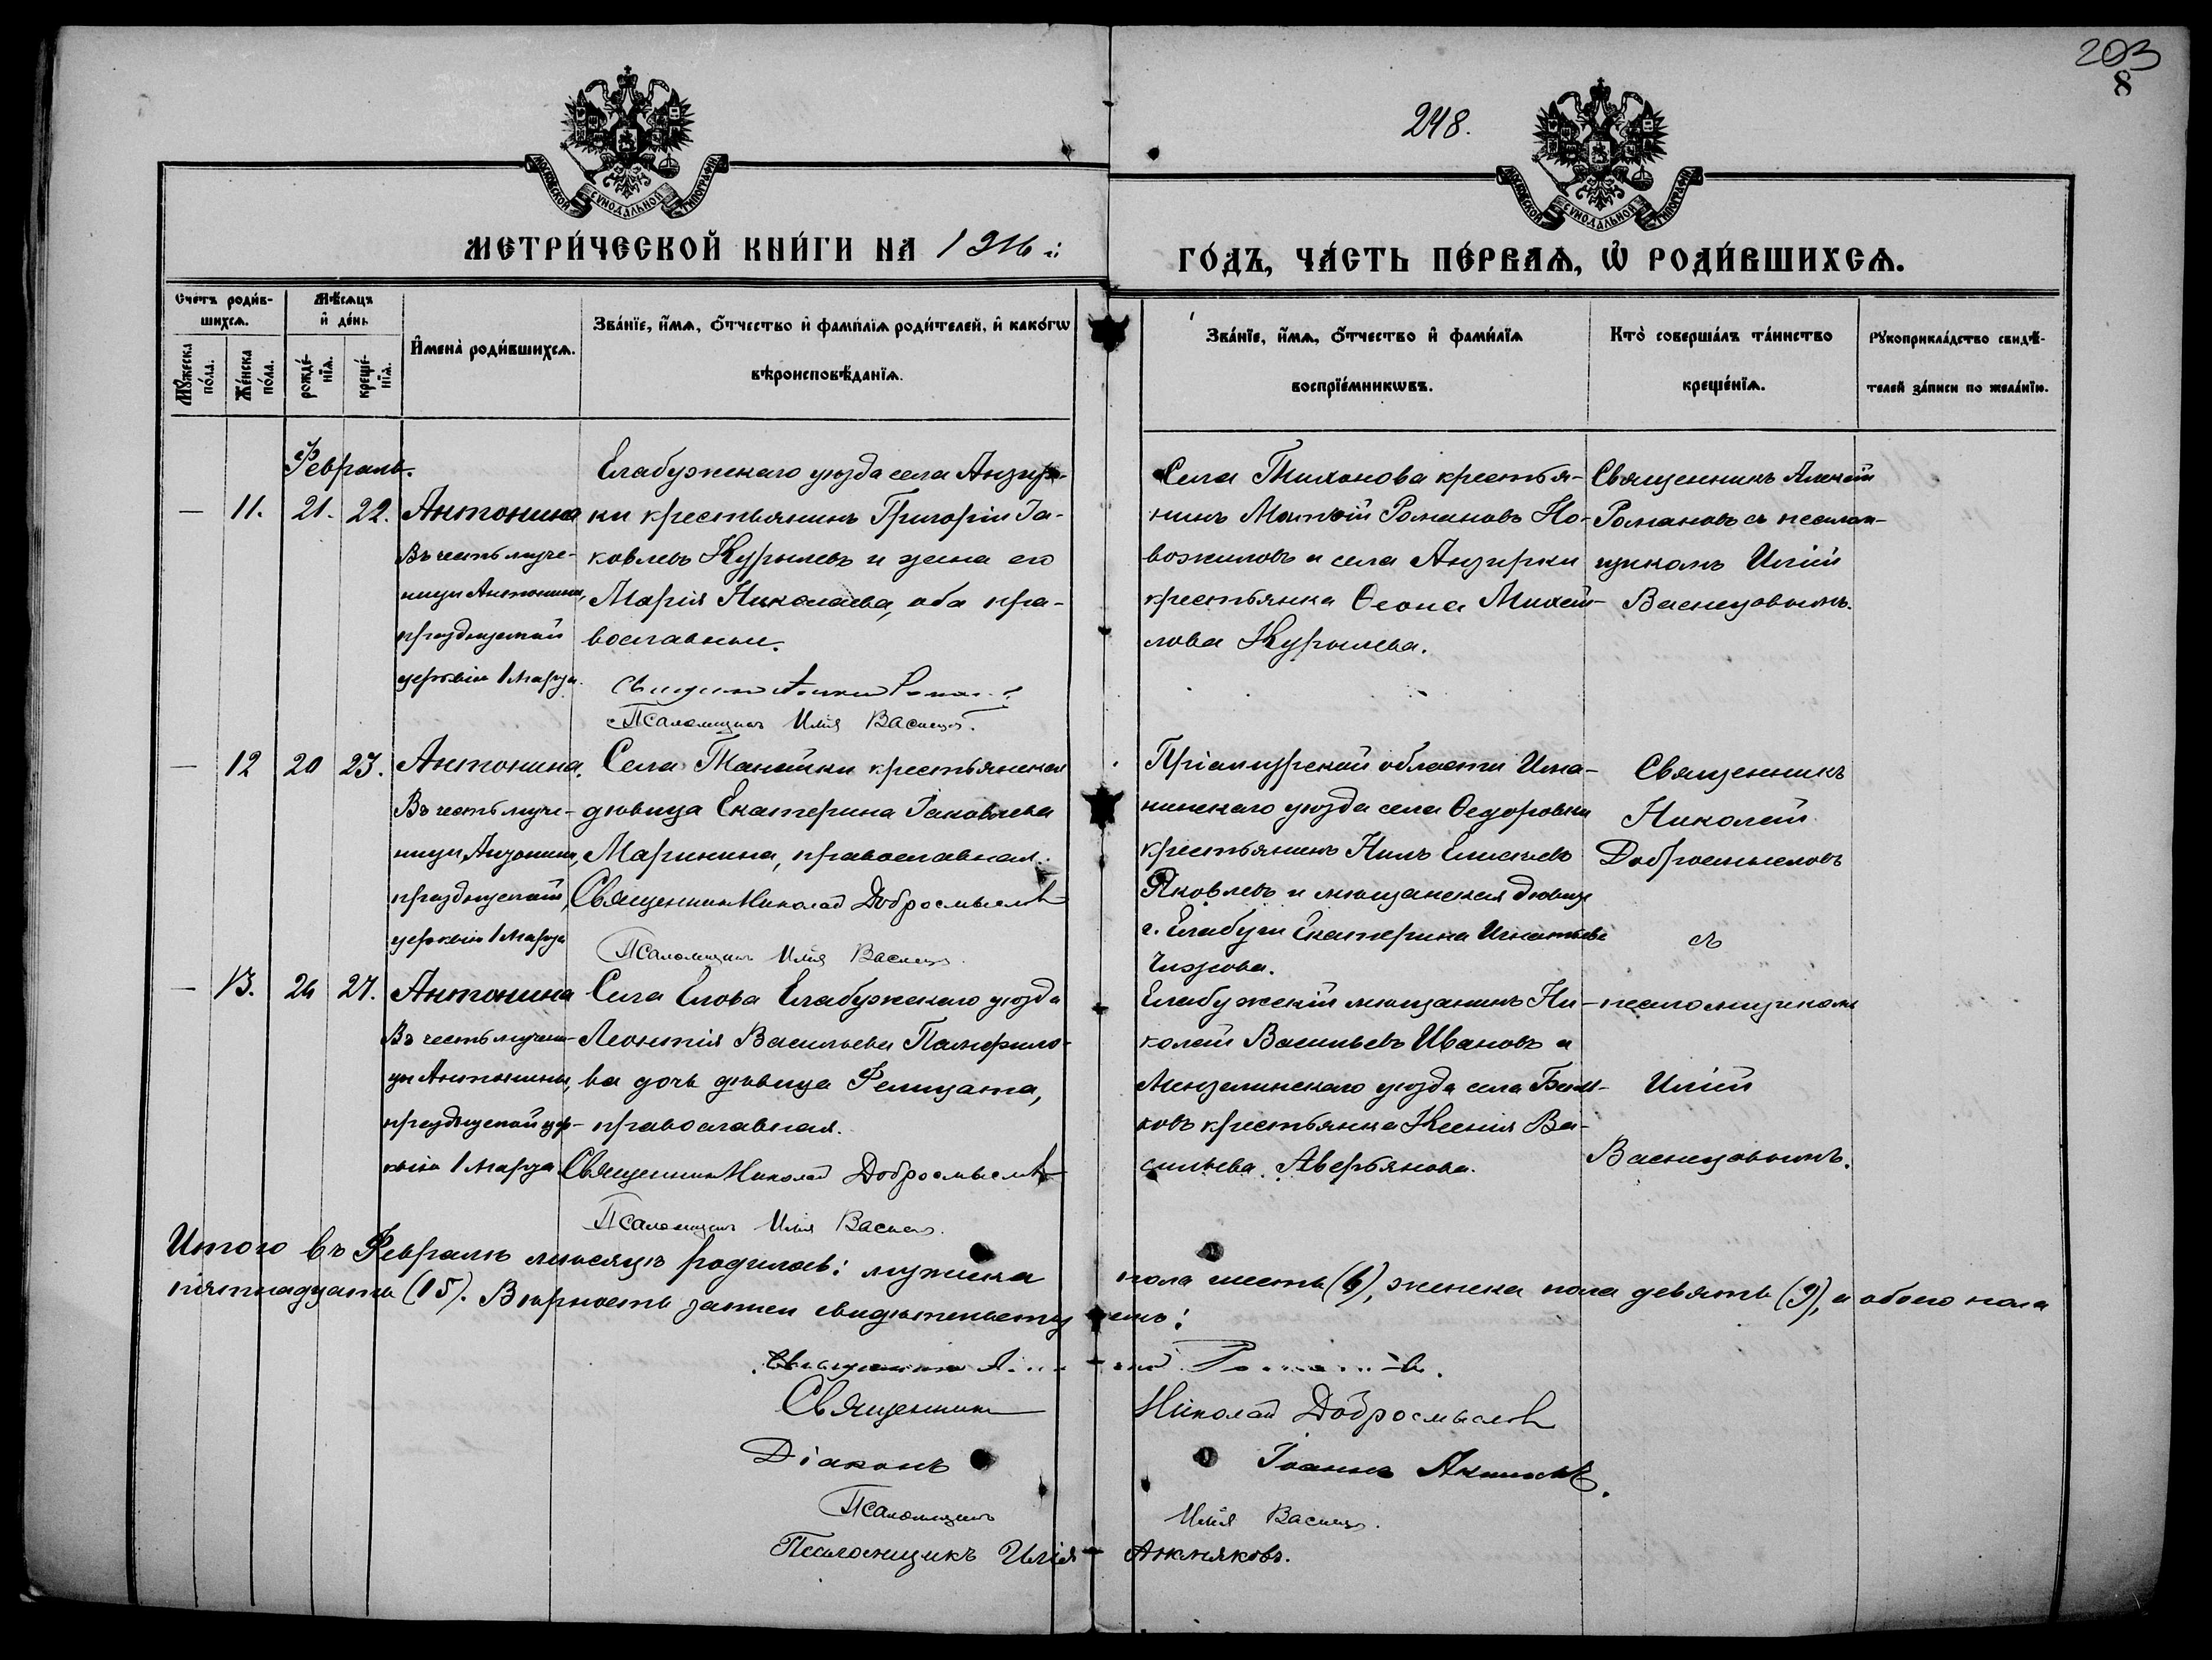 203
8
248.
МОСКОВСКОЙ СѴНОДАЛЬНОЙ ТИПОГРАФІИ
МОСКОВСКОЙ СѴНОДАЛЬНОЙ ТИПОГРАФІИ
МЕТРИ́ЧЕСКОЙ КНИ́ГИ НА 1916 г.
ГО́ДЪ, ЧА́СТЬ ПЕ́РВАѦ, Ѡ҆ РОДИ́ВШИХСѦ.
Сче́тъ роди́в-
шихсѧ.
Мѣ́сѧцъ
и҆ де́нь
Мꙋ́жеска
по́ла.
Же́нска
по́ла.
рожде́-
нїѧ.
креще́-
нїѧ.
И҆мена̀ роди́вшихсѧ.
Зва́нїе, и҆́мѧ, о҆́тчество и҆ фами́лїѧ роди́телей, и҆ како́гѡ
вѣроисповѣ́данїѧ.
Зва́нїе, и҆́мѧ, о҆́тчество и҆ фами́лїѧ
воспрїе́мникѡвъ.
Кто̀ соверша́лъ та́инство
креще́нїѧ.
Рꙋкоприкла́дство свидѣ́-
телей за́писи по жела́нїю.
Февраль.
— 11. 21. 22. Антонина
Въ честь муче-
ницы Антонины,
празднуемой
церковію 1 Марта.
Елабужскаго уѣзда села Анзир-
ки крестьянинъ Григорій Іа-
ковлевъ Курылевъ и жена его
Марія Николаева, оба пра-
вославные.
Псаломщикъ Илія Васнецовъ.
Села Тихонова крестья-
нинъ Матѳій Романовъ Но-
вожиловъ и села Анзирки
крестьянка Ѳеона Михай-
лова Курылева.
Священникъ Алексій
Романовъ съ псалом-
щикомъ Иліей
Васнецовымъ.
— 12 20 23. Антонина.
Въ честь муче-
ницы Антонины,
празднуемой,
церковію 1 Марта
Села Танайки крестьянская
дѣвица Екатерина Іаковлева
Маринина, православная.
Священникъ Николай Добросмысловъ
Псаломщикъ Илія Васнецовъ
Пріамурской области Има-
нинскаго уѣзда села Ѳедоровки
крестьянинъ Нилъ Елисѣевъ
Яковлевъ и мѣщанская дѣвица
г. Елабуги Екатерина Игнатьева
Чижова.
Священникъ
Николай
Добросмысловъ
съ
— 13. 26 27. Антонина
Въ честь мучени-
цы Антонины,
празднуемой цер-
ковію 1 Марта
Села Елова Елабужскаго уѣзда
Леонтія Васильева Памфило-
ва дочь дѣвица Фелицата,
православная.
Священникъ Николай Добросмысловъ
Псаломщикъ Илія Васнецовъ.
Елабужскій мѣщанинъ Ни-
колай Васильевъ Ивановъ и
Мензелинскаго уѣзда села
крестьянка Ксенія Ва-
сильева Аверьянова.
псаломщикомъ
Иліей
Васнецовымъ.
Итого въ Февралѣ мѣсяцѣ родилось: мужеска пола шесть (6), женска пола девять (9), а обоего пола
пятнадцать (15). Вѣрность записи свидѣтельствуемъ:
Священникъ Алексій Романовъ.
Священникъ Николай Добросмысловъ
Діаконъ Іоаннъ
Псаломщикъ Илія Васнецовъ.
Псаломщикъ Илія